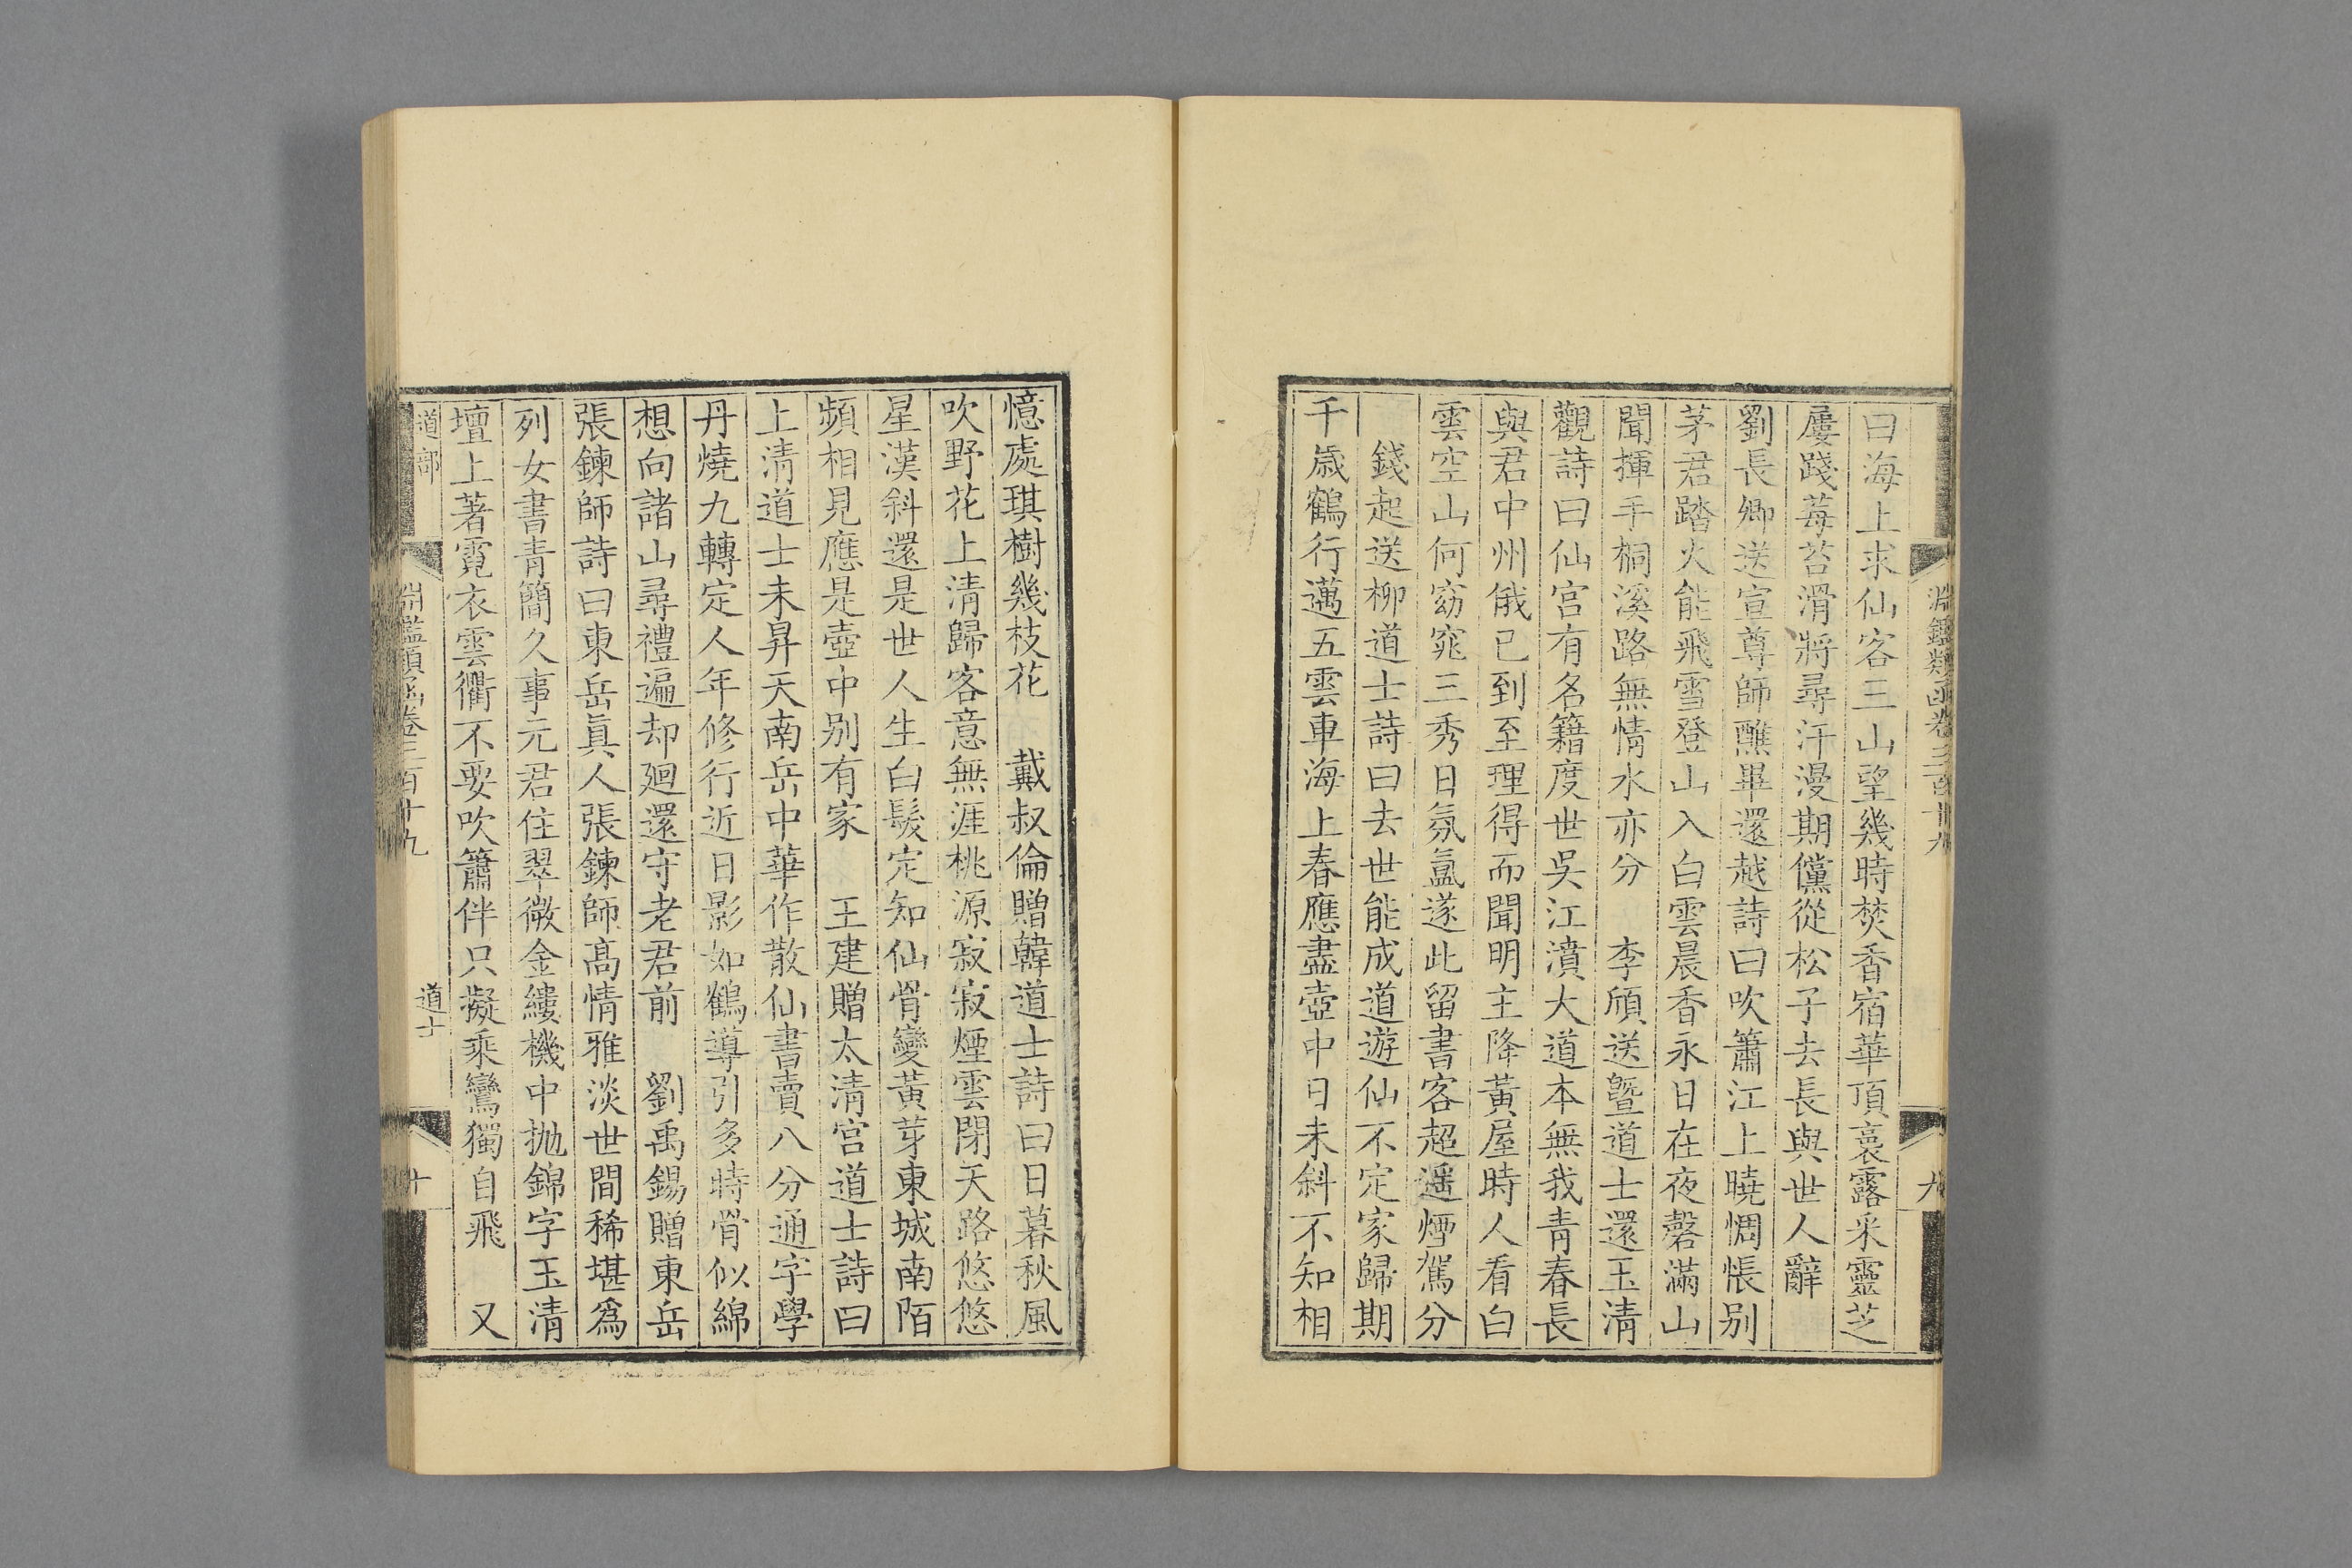 淵鑑類函卷三百十九
九
曰海上求仙客三山望幾時焚香宿華頂裛露采靈芝
屢踐莓苔滑將尋汗漫期儻從松子去長與世人辭
劉長卿送宣尊師醮畢還越詩曰吹簫江上曉惆悵别
茅君踏火能飛雪登山入白雲晨香永日在夜磬滿山
聞揮手桐溪路無情水亦分　李頎送曁道士還玉清
觀詩曰仙宫有名籍度世吳江濆大道本無我青春長
與君中州俄已到至理得而聞明主降黃屋時人看白
雲空山何窈窕三秀日氛氲遂此留書客超遥煙駕分
錢起送柳道士詩曰去世能成道遊仙不定家歸期
千歲鶴行邁五雲車海上春應盡壺中日未斜不知相
憶處琪樹幾枝花　戴叔倫贈韓道士詩曰日暮秋風
吹野花上清歸客意無涯桃源寂寂煙雲閉天路悠悠
星漢斜還是世人生白髮定知仙骨變黃芽東城南陌
頻相見應是壺中别有家　王建贈太清宫道士詩曰
上清道士未昇天南岳中華作散仙書賣八分通字學
丹燒九轉定人年修行近日影如鶴導引多時骨似綿
想向諸山尋禮遍却廻還守老君前　劉禹錫贈東岳
張鍊師詩曰東岳眞人張鍊師髙情雅淡世間稀堪爲
列女書青簡久事元君住翠微金縷機中抛錦字玉清
壇上著霓衣雲衢不要吹簫伴只擬乘鸞獨自飛　又
道部
淵鑑類函卷三百十九
道士
十